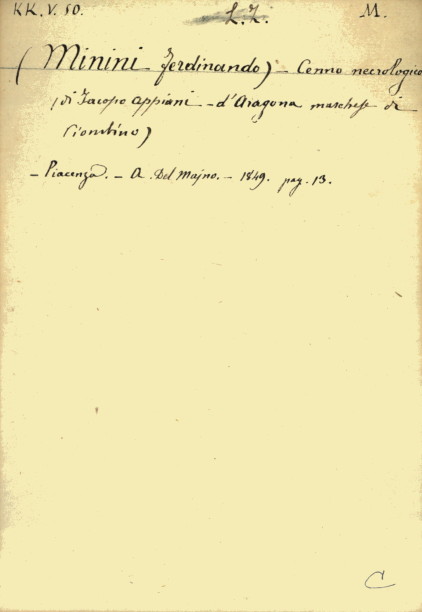 KK.V.50. L.L. M.
(Minini Ferdinando) - Cenno necrologico
(di Jacopo Appiani - d'Aragona marchese di
Piombino)
- Piacenza. - A. Del Majno. - 1849. pag. 13.
C